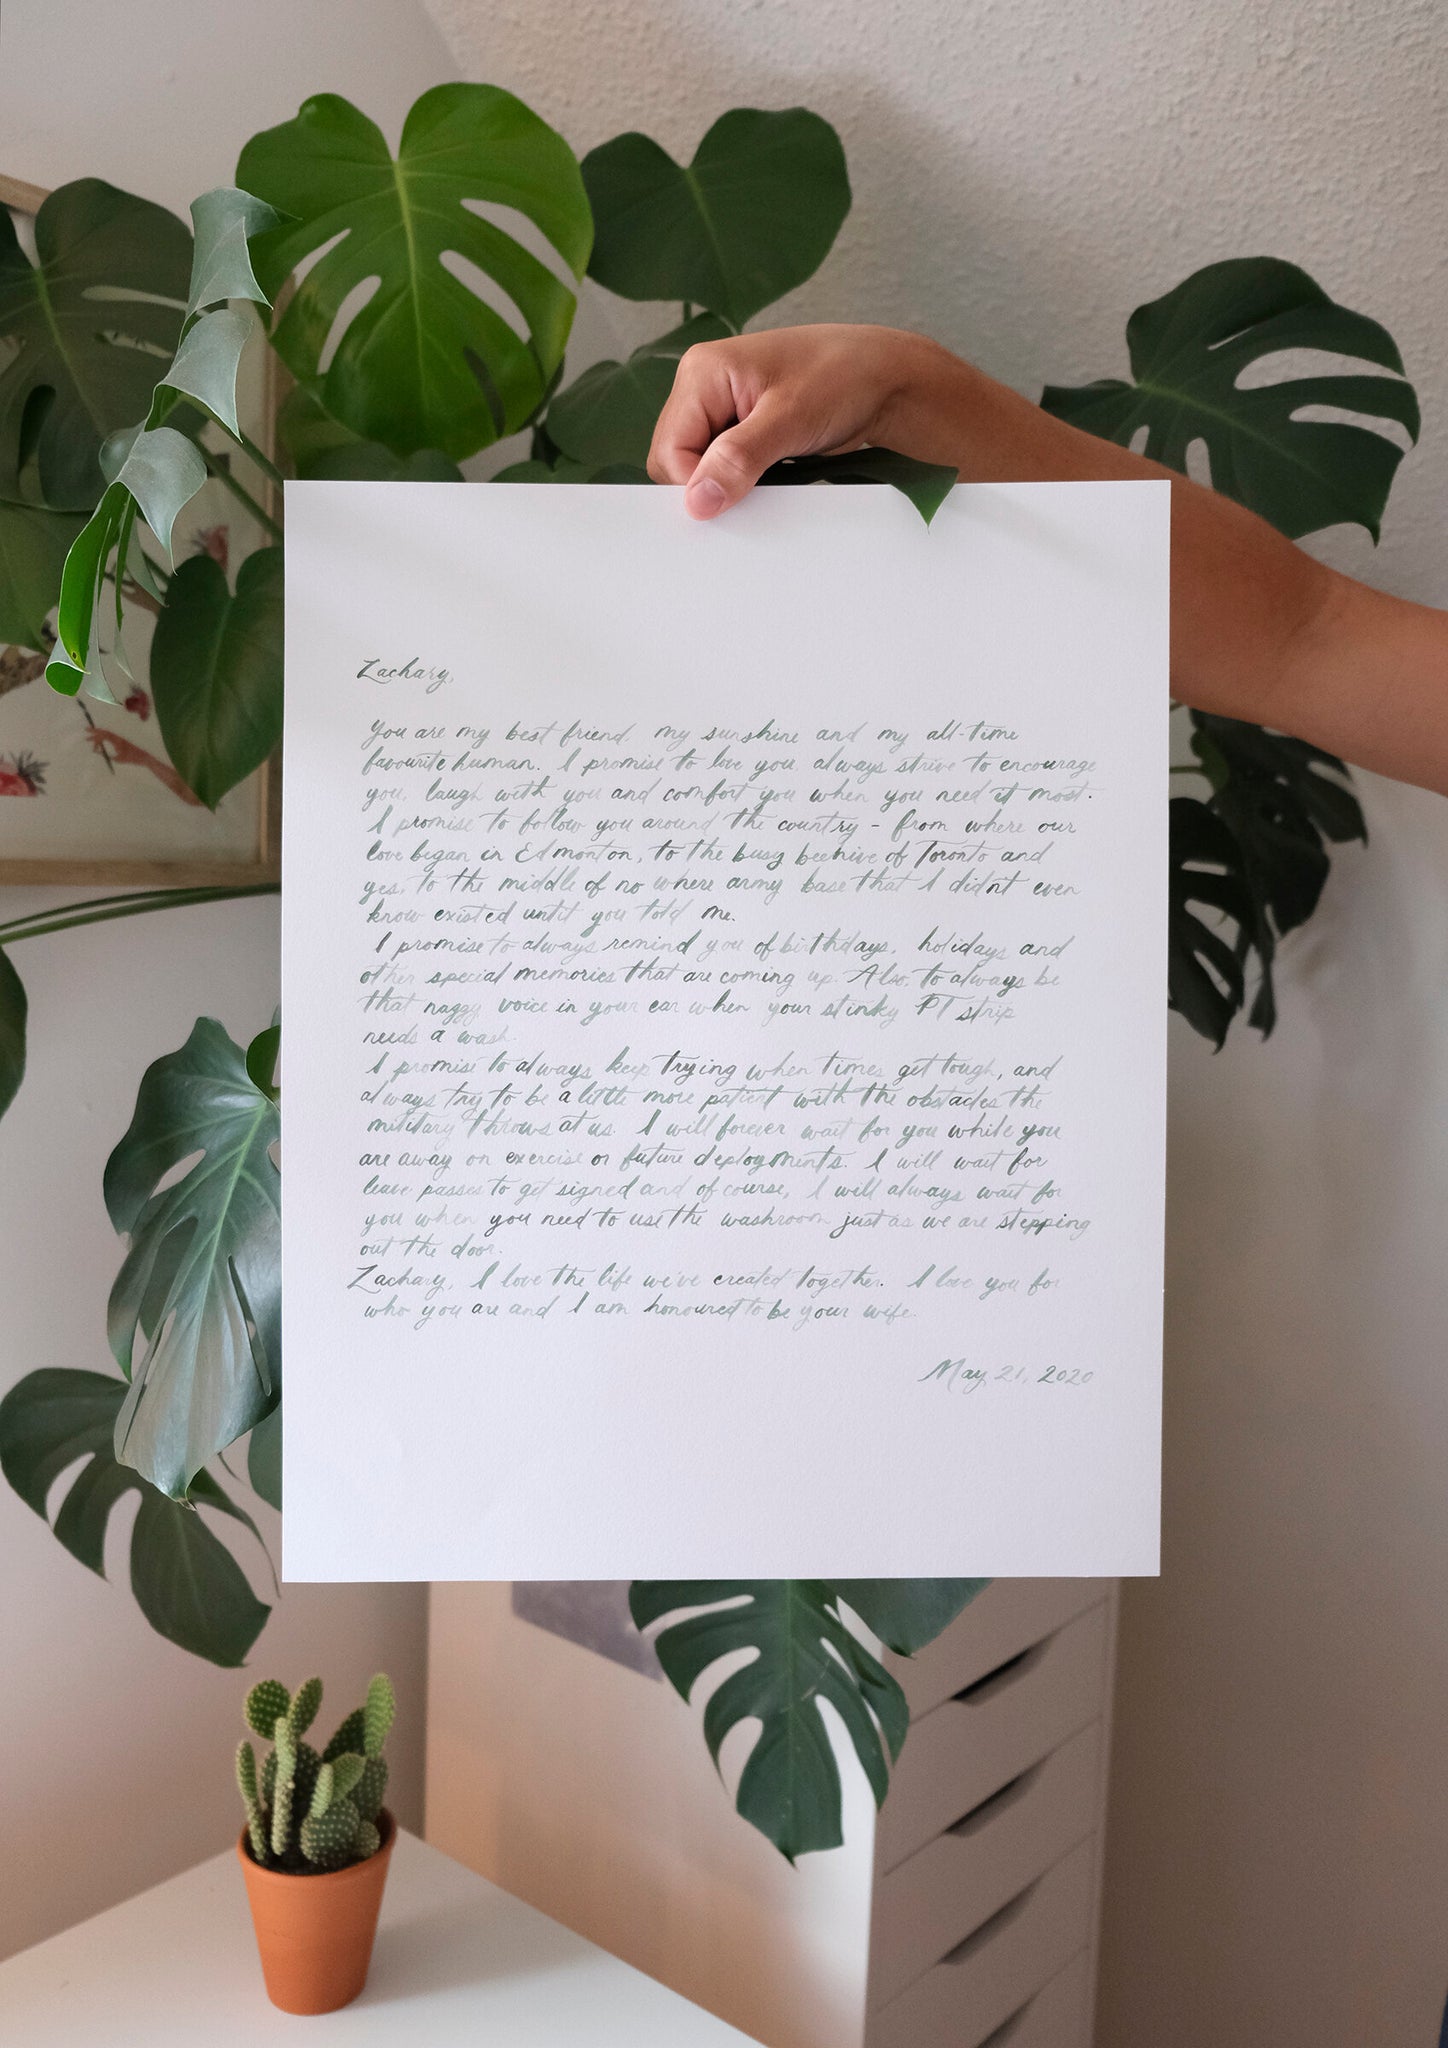 Zachary,
You are my best friend, my sunshine and my all-time
favourite human. I promise to love you, always strive to encourage
you, laugh with you and comfort you when you need it most.
I promise to follow you around the country - from where our
love began in Edmonton, to the busy beehive of Toronto and
yes, to the middle of no where army base that I didn't even
know existed until you told me.
I promise to always remind you of birthdays, holidays and
other special memories that are coming up. Also, to always be
that naggy voice in your ear when your stinky PT strip
needs a wash.
I promise to always keep trying when times get tough, and
always try to be a little more patient with the obstacles the
military throws at us. I will forever wait for you while you
are away on exercise or future deployments. I will wait for
leave passes to get signed and of course, I will always wait for
you when you need to use the washroom just as we are stepping
out the door.
Zachary, I love the life we've created together. I love you for
who you are and I am honoured to be your wife.
May 21, 2020